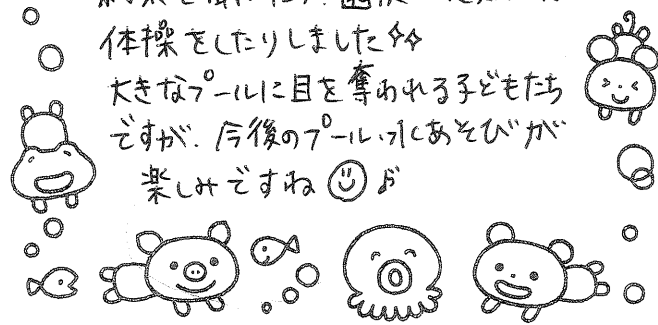 体操をしたりしました✧✧
大きなプールに目を奪われる子どもたち
ですが、今後のプール・水あそびが
楽しみですね☺♪